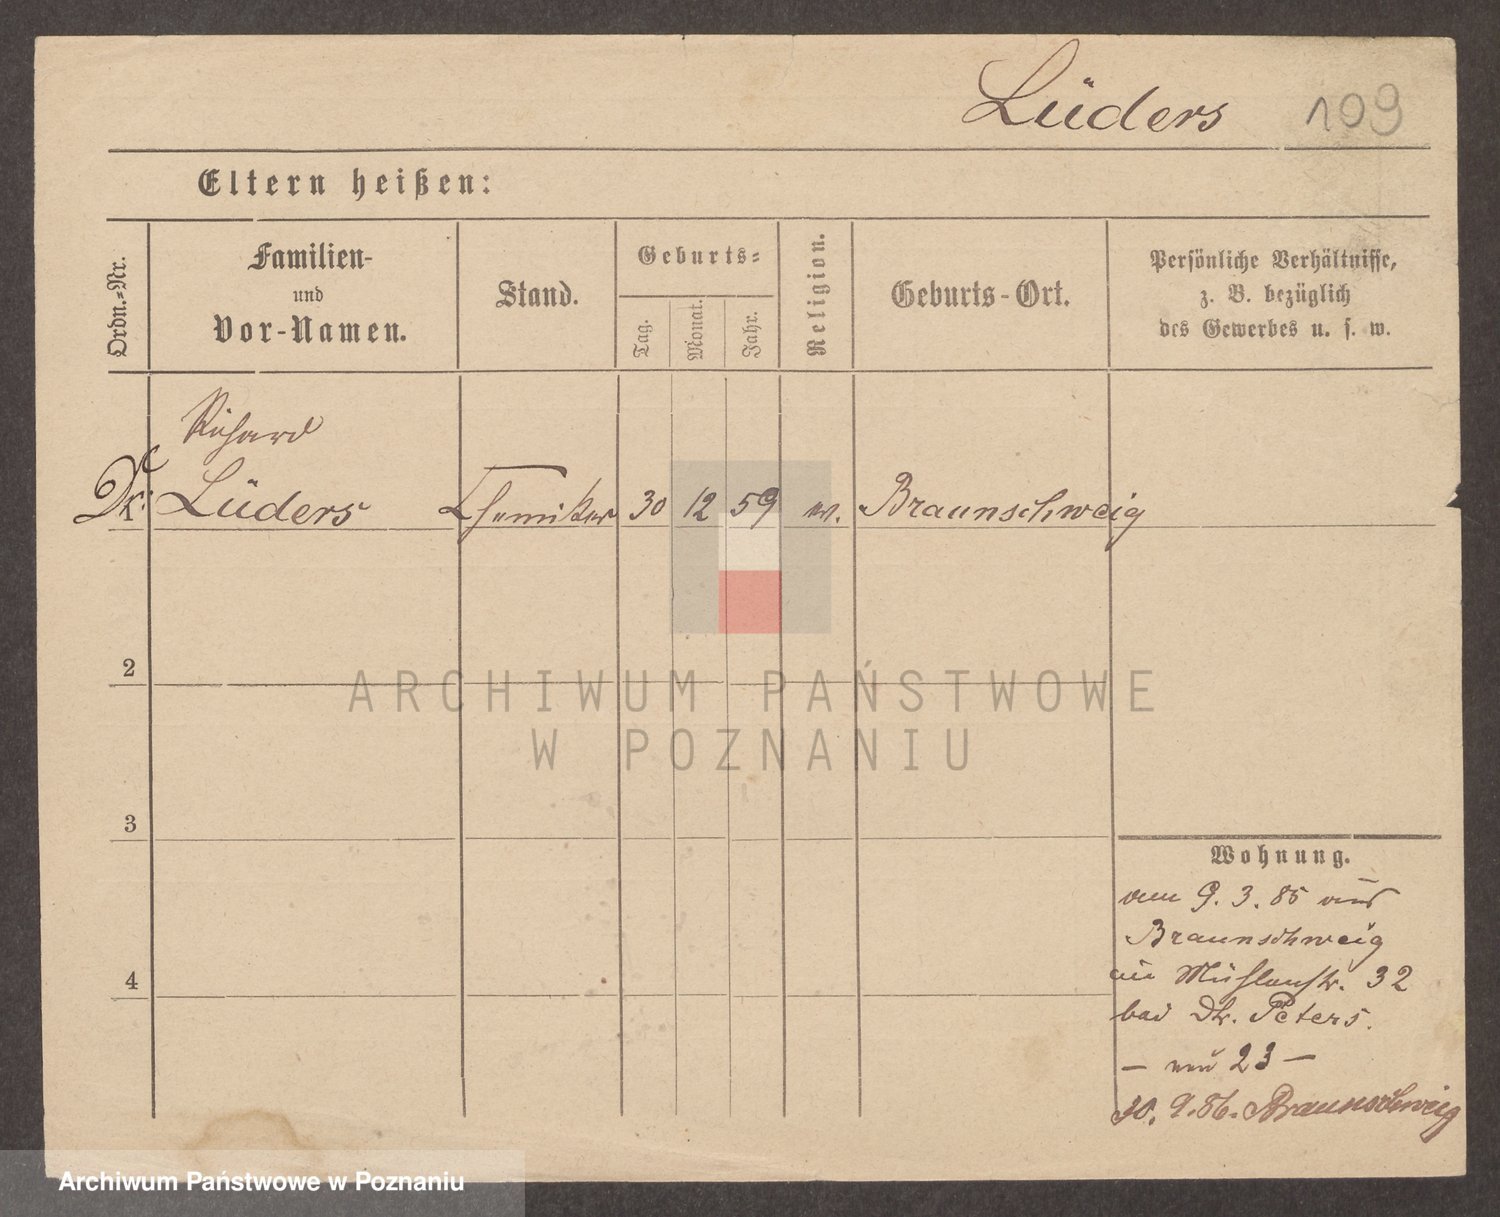 Lüders 109
Eltern heißen:
Ordn.-Nr.
Familien-
und
Vor-Namen.
Stand.
Geburts-
Tag.
Monat.
Jahr.
Religion.
Geburts-Ort.
Persönliche Verhältnisse,
z. B. bezüglich
des Gewerbes u. s. w.
Richard
Dr. Lüders Chemiker 30 12 59 ev. Braunschweig
1
2
3
4
ARCHIWUM PAŃSTWOWE
W POZNANIU
Wohnung.
vom 9. 3. 85 aus
Braunschweig
Mühlenstr. 32
bei Dr. Peters.
— neu 23 —
30. 9. 86. Braunschweig
Archiwum Państwowe w Poznaniu